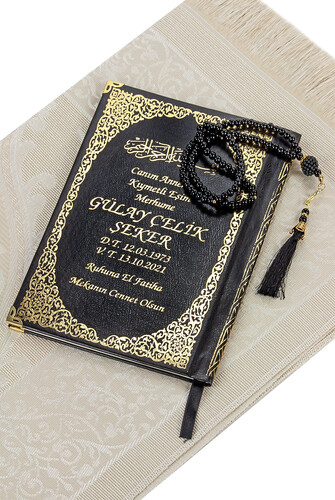 Canım Annem
Kıymetli Eşim
Merhume
GÜLAY ÇELİK
ŞEKER
D.T. 12.03.1973
V. T. 13.10.2021
Ruhuna El Fatiha
Mekanın Cennet Olsun